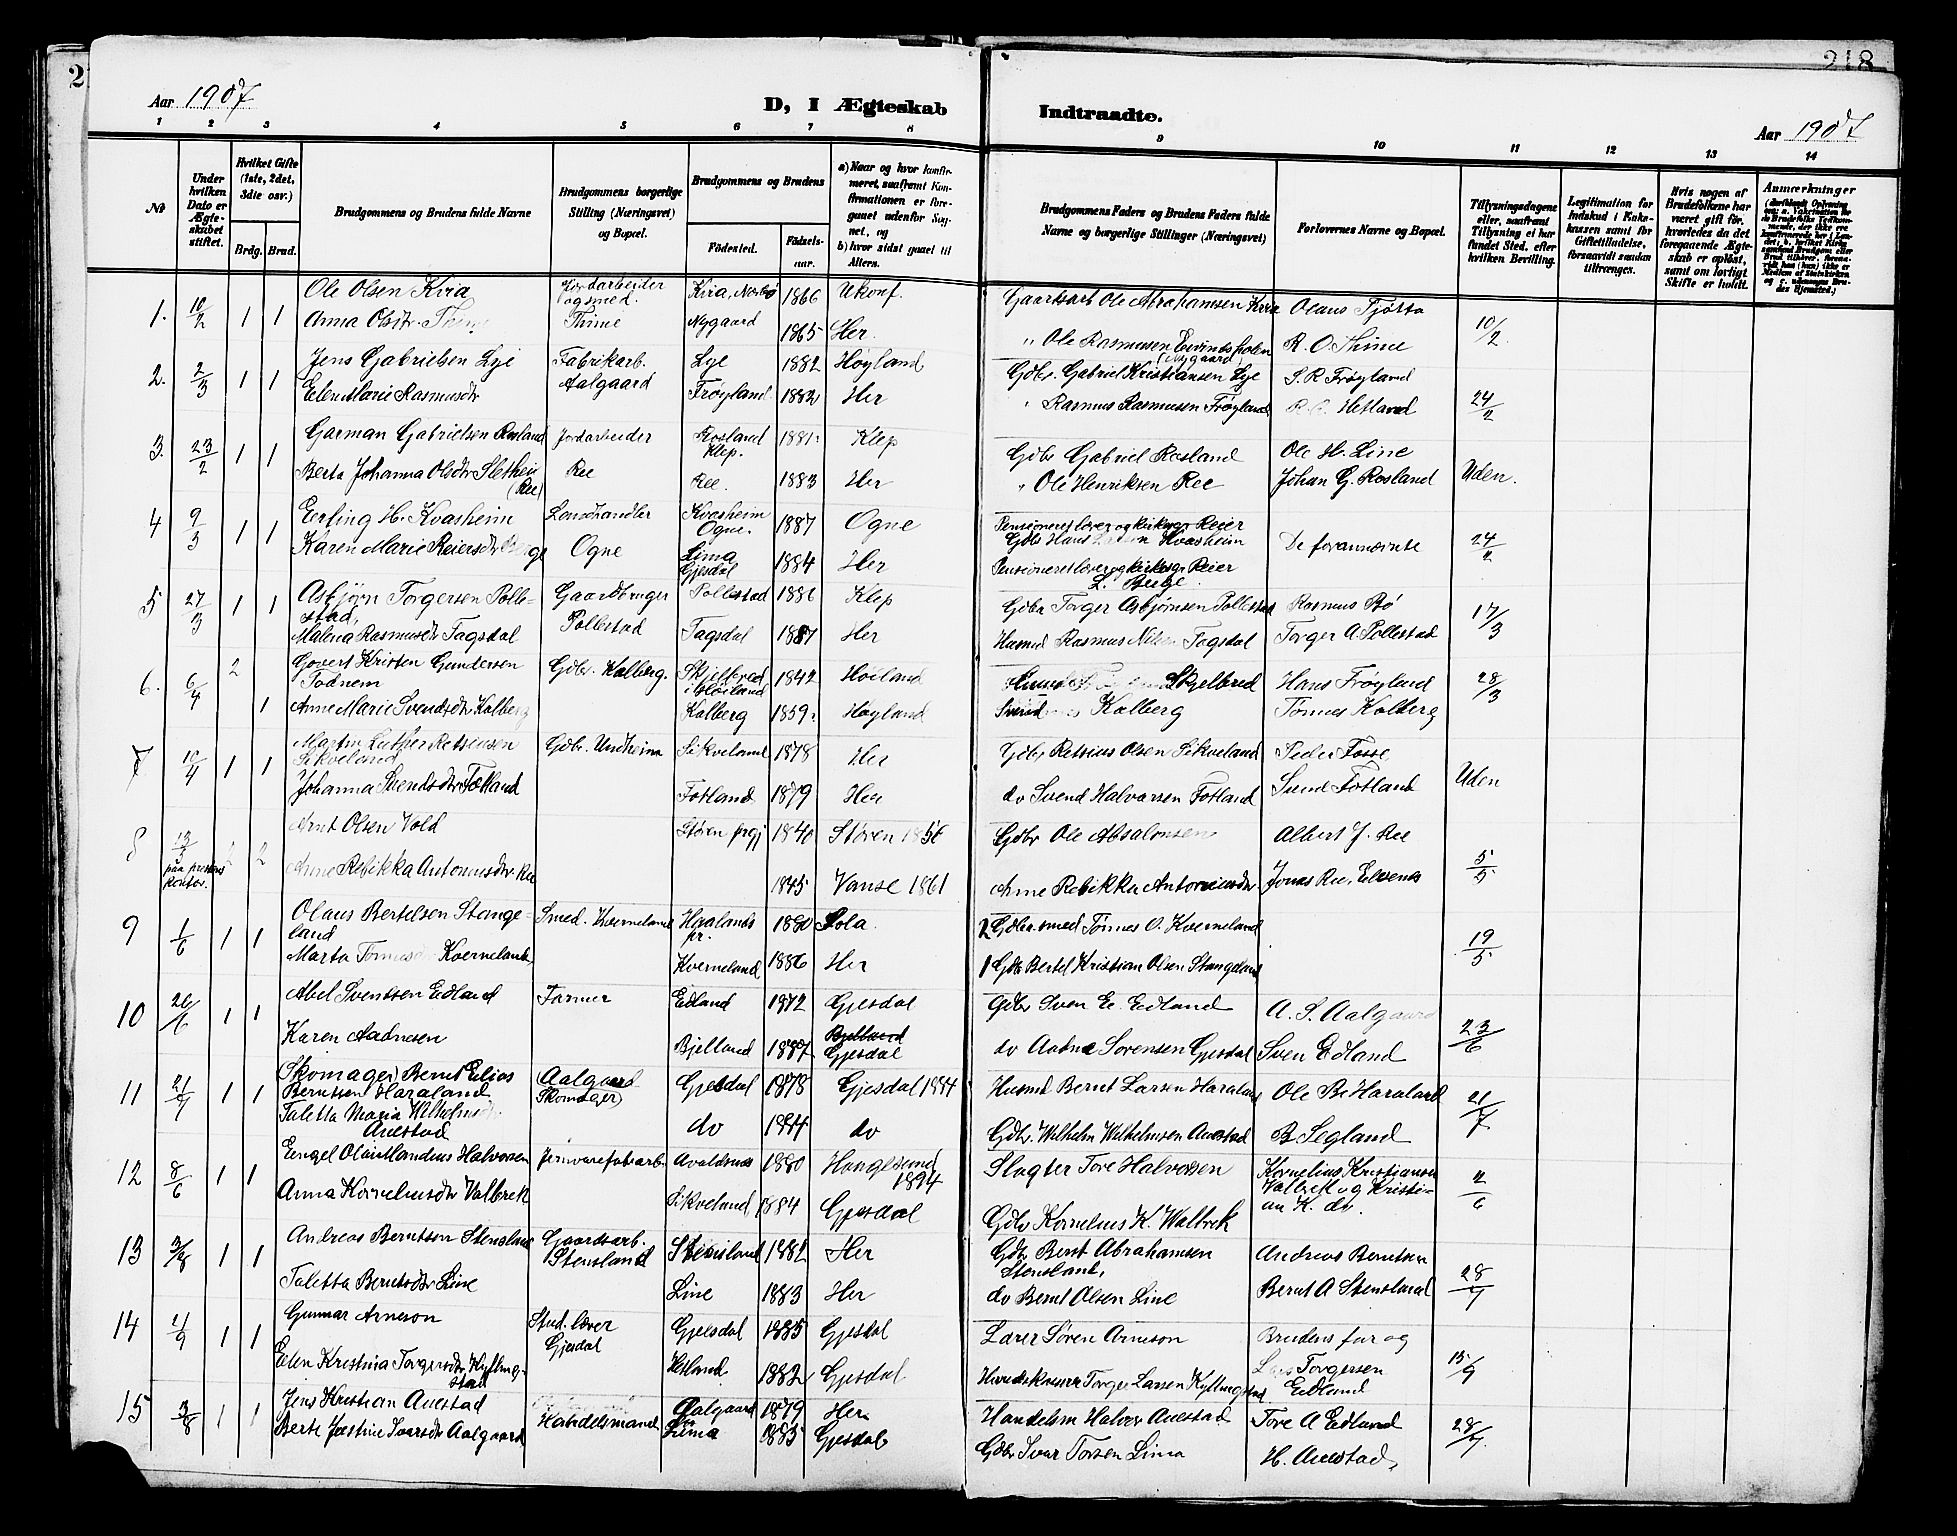 2
218
Aar 1907
D, I Ægteskab
Indtraadte.
Aar 1907
1 2 3 4 5 6 7 8 9 10 11 12 13 14
No
Under hvilken Dato er Ægteskabet stiftet.
Hvilket Gifte (1ste, 2det, 3die osv.)
Brdg. Brud.
Brudgommens og Brudens fulde Navne
Brudgommens borgerlige Stilling (Næringsvei) og Bopæl.
Brudgommens og Brudens
Fødested. Fødselsaar.
a) Naar og hvor konfirmeret, saafremt Konfirmationen er foregaaet udenfor Sognet, og
b) hvor sidst gaaet til Alters.
Brudgommens Faders og Brudens Faders fulde Navne og borgerlige Stillinger (Næringsvei)
Forlovernes Navne og Bopæl.
Tillysningsdagene eller, saafremt Tillysning ei har fundet Sted, efter hvilken Bevilling.
Legitimation for Indskud i Enkekassen samt for Giftetilladelse, forsaavidt saadan tiltrænges.
Hvis nogen af Brudefolkene har været gift før, hvorledes da det foregaaende Ægteskab er opløst, samt om lovligt Skifte er holdt.
Anmærkninger
1. 10/2 1 1 Ole Olsen Kvia Jordarbeider og smed. Kvia, Nærbø 1866 Ukonf. Gaardsarb Ole Abrahamsen Kvia Olaus Tjøtta 10/2
Anna Olsdtr Thime Thime Nygaard 1865 Her. " Ole Rasmussen Eevindsholen (Nygaard) R. O. Thime
2. 2/3 1 1 Jens Gabrielsen Lye Fabrikarb. Lye 1882 Høyland Gdbr. Gabriel Kristiansen Lye S. R Frøyland 24/2
Elen Marie Rasmusdtr Aalgaard Frøyland 1882 Her " Rasmus Rasmusen Frøyland Hetland
3. 23/2 1 1 Garman Gabrielsen Rosland Jordarbeider Rosland Klep. 1881 Klep Gdbr Gabriel Rosland Ole H. Line Uden.
Berta Johanna Olsdtr Sletheia (Ree) Ree Ree. 1883 Her " Ole Henriksen Ree Johan G. Rosland
4 9/3 1 1 Erling H. Kvasheim Landhandler Kvasheim Ogne. 1887 Ogne Pensioneret lærer og kirkesgr Reier
Gdbr Hans Kvasheim De forannævnte 24/2
Karen Marie Reiersdtr Berge Ogne Lima Gjesdal 1884 Her Pensioneret lærer og kirkesgr Reier L. Berge
5 27/3 1 1 Asbjørn Torgersen Pollestad, Gaardbruger 1886 Klep Gdbr Torger Asbjørnsen Pollestad Rasmus Bø 17/3
Malena Rasmusdtr Tagsdal Pollestad Tagsdal 1887 Her Husmd Rasmus Nilsen Tagsdal Torger A Pollestad
6. 6/4 2 Govert Kristen Gundersen Todnem Gdbr. Kalberg. Skjelbred i Høiland 1842 Høiland Skjelbred Hans Frøyland 28/3
1 Anne Marie Svendsdtr Kalberg Kalberg 1859 Høyland Kalberg Tønnes Kalberg
7 10/4 1 1 Martin Luther Retsiusen Sikveland Gdbr. Undheim Sikveland 1878 Her Gdbr Retsius Olsen Sikveland Peder Fosse, Uden
Johanna Svendsdtr Fotland Fotland 1879 Her do Svend Halvarsen Fotland Svend Fotland
8 paa prestens kontor. 2 2 Arnt Olsen Vold Støren prgj 1840 Støren 1856 Gdbr Ole Absalonsen Albert J. Ree 5/5
Anne Rebikka Antoniusdtr Ree 1845 Vanse 1861 Anne Rebikka Antoniusdtr Jonas Ree,
9 1/6 1 1 Olaus Bertelsen Stangeland Smed. Kverneland Haalands pr. 1880 Sola 2 Gdbr. smed Tønnes O. Kverneland 19/5
Marta Kverneland, Kverneland 1886 Her 1 Gdbr Bertel Kristian Olsen Stangeland
10 26/6 1 1 Abel Sventsen Edland Farmer Edland 1872 Gjesdal Gdbr Sven E. Edland A. S. Aalgaard 23/6
Karen Aadnesen Bjelland 1887 Bjelland Gjesdal do Aadne Sørensen Gjesdal Sven Edland
11 21/7 1 1 Skomager) Bernt Elias Berntsen Haraland Aalgaard Skomager) Gjesdal 1878 Gjesdal 1894 Husmd Bernt Larsen Haraland Ole B. Haraland 21/7
Taletta Maria Wilhelmsdtr Auestad do 1884 do Gdbr. Wilhelm Wilhelmsen Auestad B Segland
12 8/6 1 1 Engel Olai Halvorsen Jernvarefabarb. Avaldsnes 1880 Haugesund 1894 Slagter Tore Halvorsen Kornelius Kristiansen Valbrek og Kristian K. do.
Anna Korneliusdtr Valbrek Sikveland 1884 Gjesdal Gdbr Kornelius K. Walbrek
13 3/8 1 1 Andreas Berntsen Stensland Gaardsarb. Stensland Stensland 1882 Her Gdbr Bernt Abrahamsen Stensland, Andreas Berntsen 28/7
Taletta Berntsdtr Line Line 1883 Her do Bernt Olsen Line Bernt A Stensland
14 1 1 Gunnar Arneson Stud. lærer Gjesdal Gjesdal 1885 Gjesdal Lærer Søren Arneson Brudens far og 15/9
Elen Kristina Torgersdtr Kyllingstad 1882 Gjesdal Torger Larsen Kyllingstad Lars Torgersen Edland
15 3/8 1 1 Jens Kristian Auestad Handelsmand Aalgaard 1879 Her Handelsm Halvor Auestad Tore A Edland 28/7.
Berte Justine Ivarsdtr Aalgaard Lima 1885 Gjesdal Gdbr Ivar Torsen Lima H. Auestad,